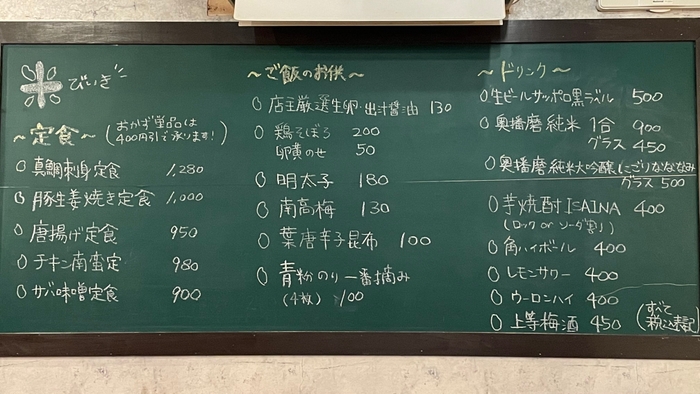 米びいき
～定食～(おかず単品は
400円引で承ります!)
真鯛刺身定食 1,280
豚生姜焼き定食 1,000
唐揚げ定食 950
チキン南蛮定 980
サバ味噌定食 900
～ご飯のお供～
店主厳選生卵・出汁醤油 130
鶏そぼろ 200
卵黄のせ 50
明太子 180
南高梅 130
葉唐辛子昆布 100
青粉のり一番摘み
(4枚) 100
～ドリンク～
生ビールサッポロ黒ラベル 500
奥播磨純米 1合 900
グラス 450
奥播磨純米大吟醸(にごりななななみ
グラス 500
芋焼酎 ISAINA 400
(ロック or ソーダ割り)
角ハイボール 400
レモンサワー 400
ウーロンハイ 400
上等梅酒 450
(すべて
税込表記)